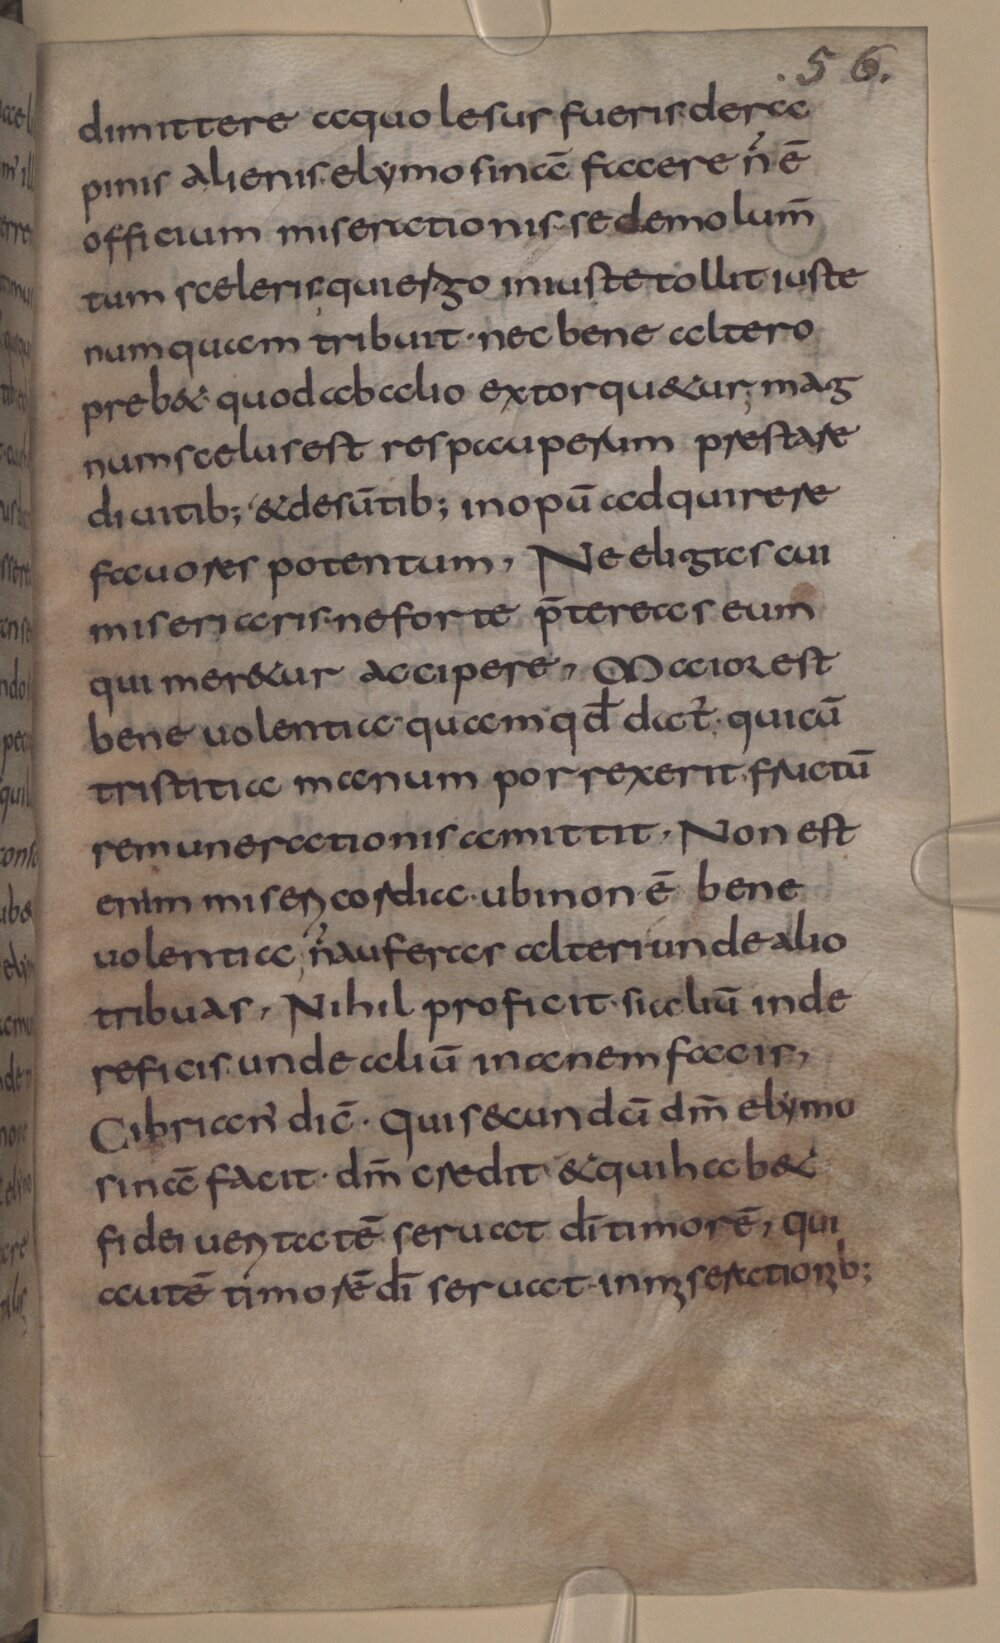 .56.
dimittere aquo lesus fueris. de ra
pinis alienis. elymosinā facere n̄ ē
officium miserationis. sed emolum̄
tum sceleris; qui ergo iniuste tollit iuste
numquam tribuit· nec bene altero
preb& quod ab alio extorqu&ur; mag
num scelus est res pauperum prestare
diuitib; & desūtib; inopū adquirere
fauores potentum, Ne eligas cui
miseriaris. ne forte p̄tereas eum
qui mer&ur accipere, Maior est
beneuolentia quam qđ dat̾. qui cū
tristitia manum porrexerit. fructū
remunerationis amittit, Non est
enim misericordia· ubi non ē bene
uolentia; n̄ auferas alteri unde alio
tribuas, Nihil proficit· si aliū inde
reficis. unde aliū inanem facis,
Cibrian' dic̄· Qui secundū dm̄ elymo
sinā facit· dm̄ credit· & qui hab&
fidei ueritatē seruat dī timorē, qui
autē timorē dī seruat· in miserationib;